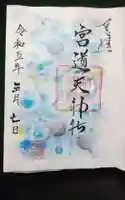 奉拝
宮道天神社
令和五年
五月七日